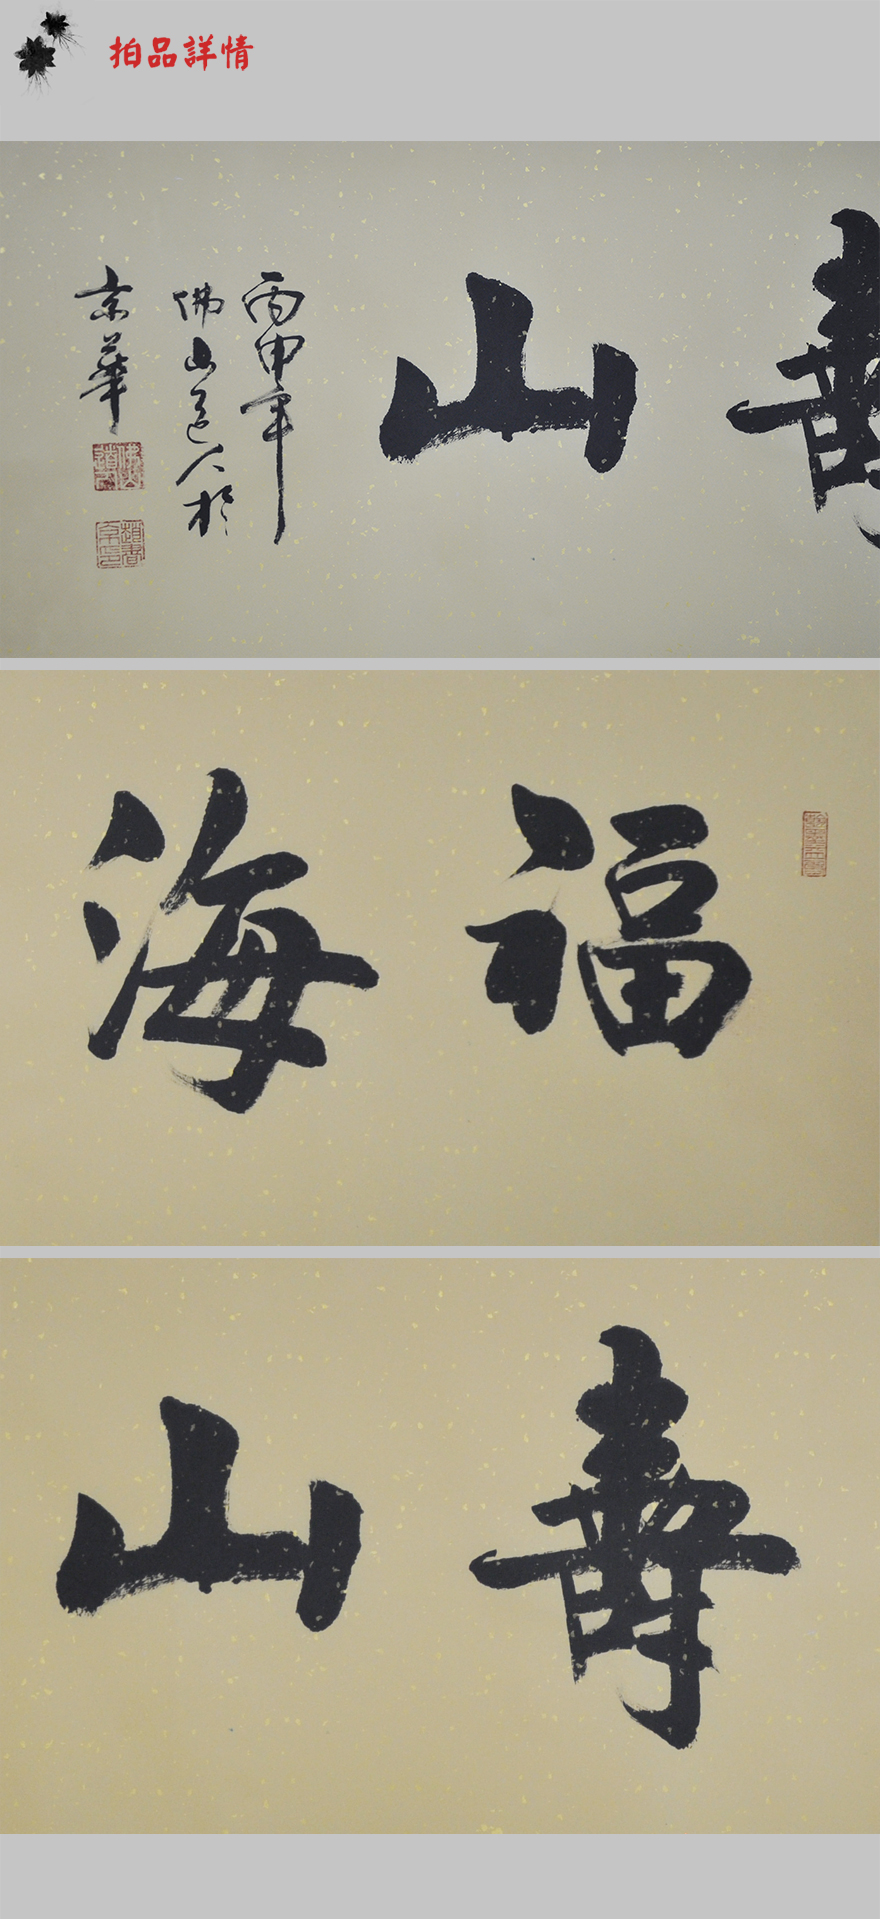 拍品詳情
壽山
丙申年
佛山道人於
京華
福海
壽山